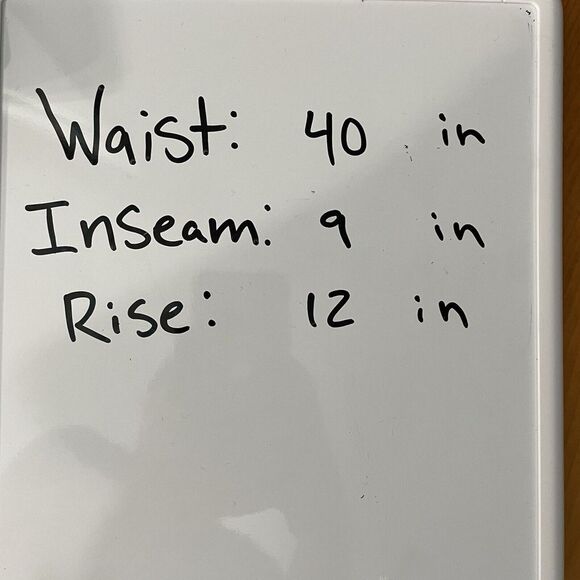 Waist: 40 in
Inseam: 9 in
Rise: 12 in